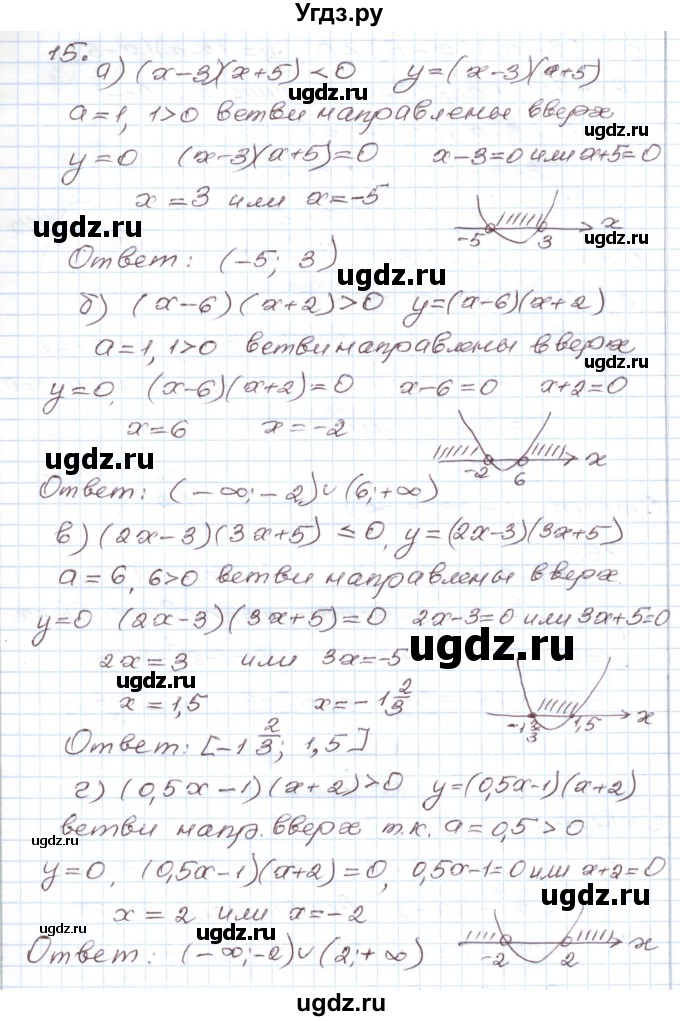 Угдз.ру
15.
а) (x-3)(x+5) < 0   y=(x-3)(x+5)
ugdz.ru
a=1, 1>0 ветви направлены вверх
ugdz.ru
y=0   (x-3)(x+5)=0   x-3=0 или x+5=0
x=3 или x=-5
ugdz.ru
-5   3   x
ugdz.ru
Ответ: (-5; 3)
ugdz.ru
б) (x-6)(x+2)>0   y=(x-6)(x+2)
a=1, 1>0 ветви направлены вверх
ugdz.ru
y=0, (x-6)(x+2)=0   x-6=0   x+2=0
x=6   x=-2
ugdz.ru
-2   6   x
Ответ: (-∞; -2)∪(6; +∞)
в) (2x-3)(3x+5) ≤ 0, y=(2x-3)(3x+5)
a=6, 6>0 ветви направлены вверх.
y=0   (2x-3)(3x+5)=0   2x-3=0 или 3x+5=0
ugdz.ru
2x=3   или   3x=-5
ugdz.ru
x=1,5   x=-1 2/3
-1 2/3   1,5   x
Ответ: [-1 2/3; 1,5]
г) (0,5x-1)(x+2)>0   y=(0,5x-1)(x+2)
ugdz.ru
ветви напр. вверх т.к. a=0,5>0
y=0, (0,5x-1)(x+2)=0, 0,5x-1=0 или x+2=0
ugdz.ru
x=2 или x=-2
ugdz.ru
ugdz.ru
-2   2   x
Ответ: (-∞; -2)∪(2; +∞)
ugdz.ru